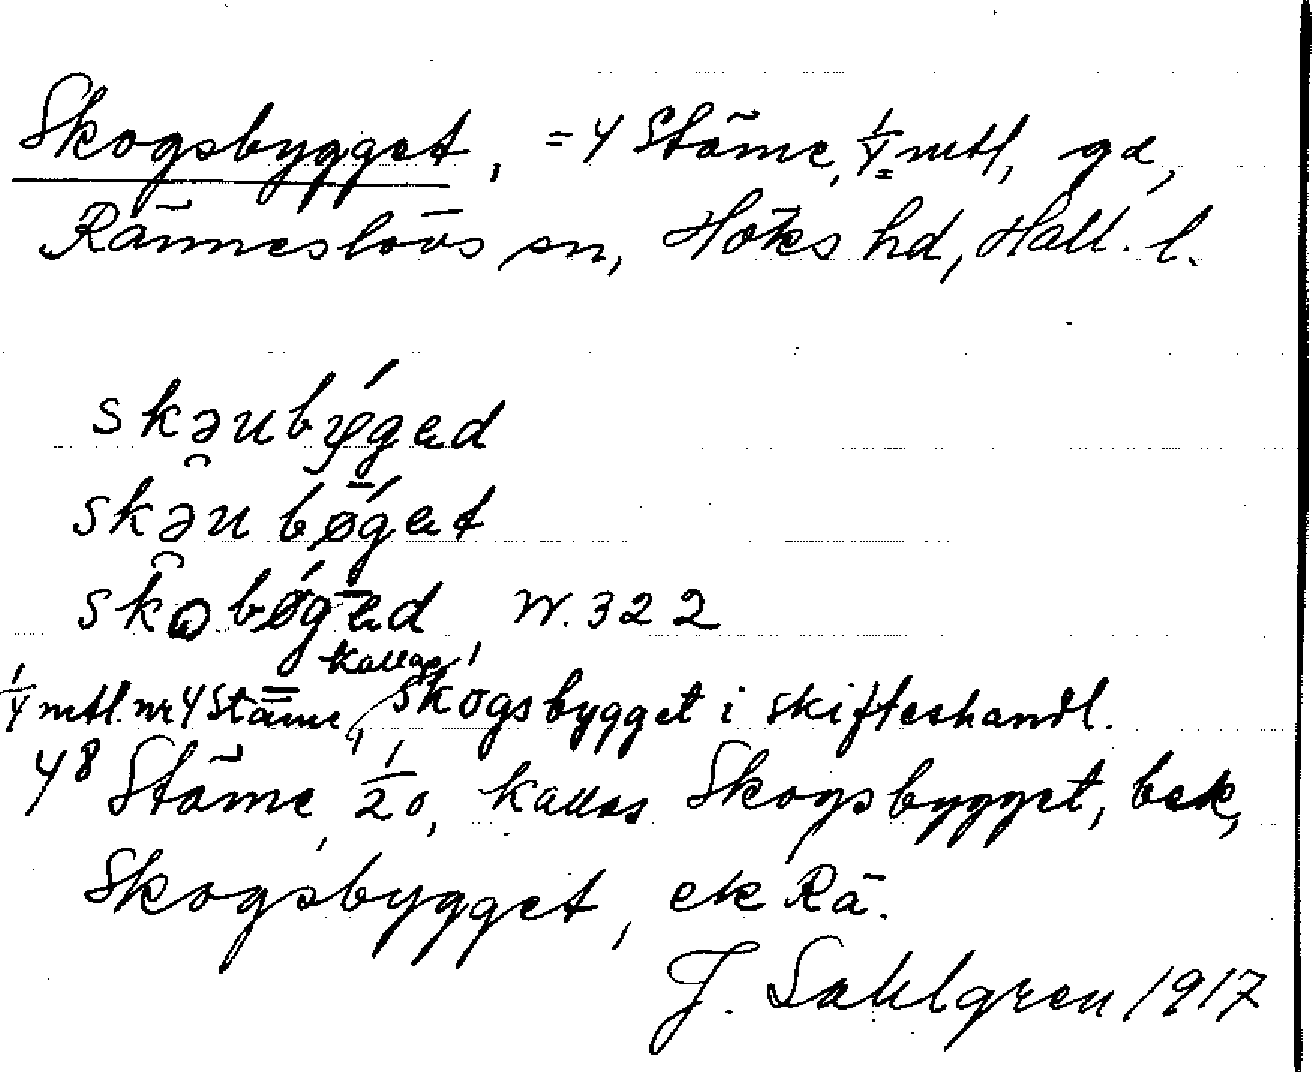 Skogsbygget, = 4 Stäme, 1/4 mtl, gd,
Ränneslövs sn, Höks hd, Hall. l.
skəubýged
skəu bǿget
skobǿged W. 322
1/4 mtl. nr 4 Stäme, kallas Skogsbygget i skifteshandl.
4⁸ Stäme, 1/20, kallas Skogsbygget, bek,
Skogsbygget, ek Rä.
J. Sahlgren 1917